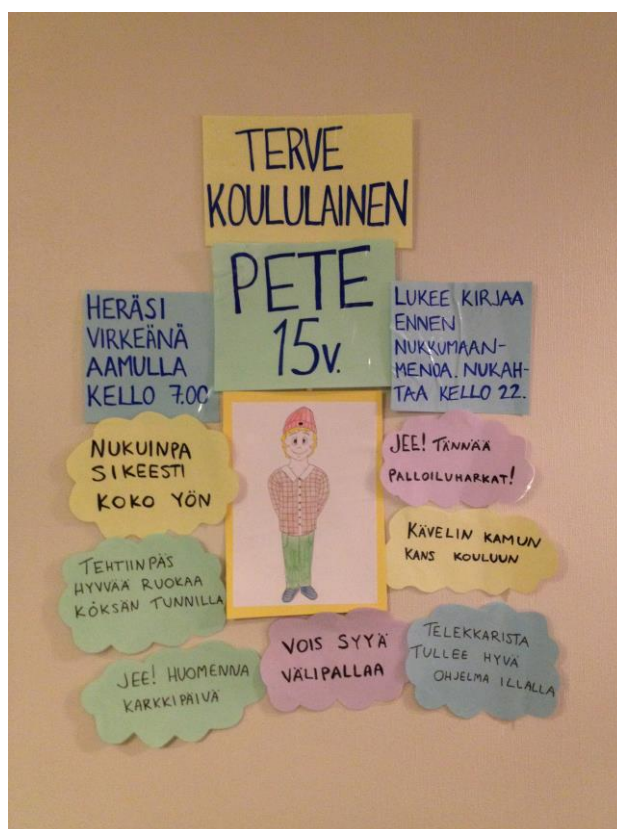 TERVE
KOULULAINEN
PETE
15v.
HERÄSI
VIRKEÄNÄ
AAMULLA
KELLO 7.00
LUKEE KIRJAA
ENNEN
NUKKUMAAN-
MENOA. NUKAH-
TAA KELLO 22.
NUKUINPA
SIKEESTI
KOKO YÖN
JEE! TÄNNÄÄ
PALLOILUHARKAT!
TEHTIINPÄS
HYVVÄÄ RUOKAA
KÖKSÄN TUNNILLA
KÄVELIN KAMUN
KANS KOULUUN
JEE! HUOMENNA
KARKKIPÄIVÄ
VOIS SYYÄ
VÄLIPALLAA
TELEKKARISTA
TULLEE HYVÄ
OHJELMA ILLALLA